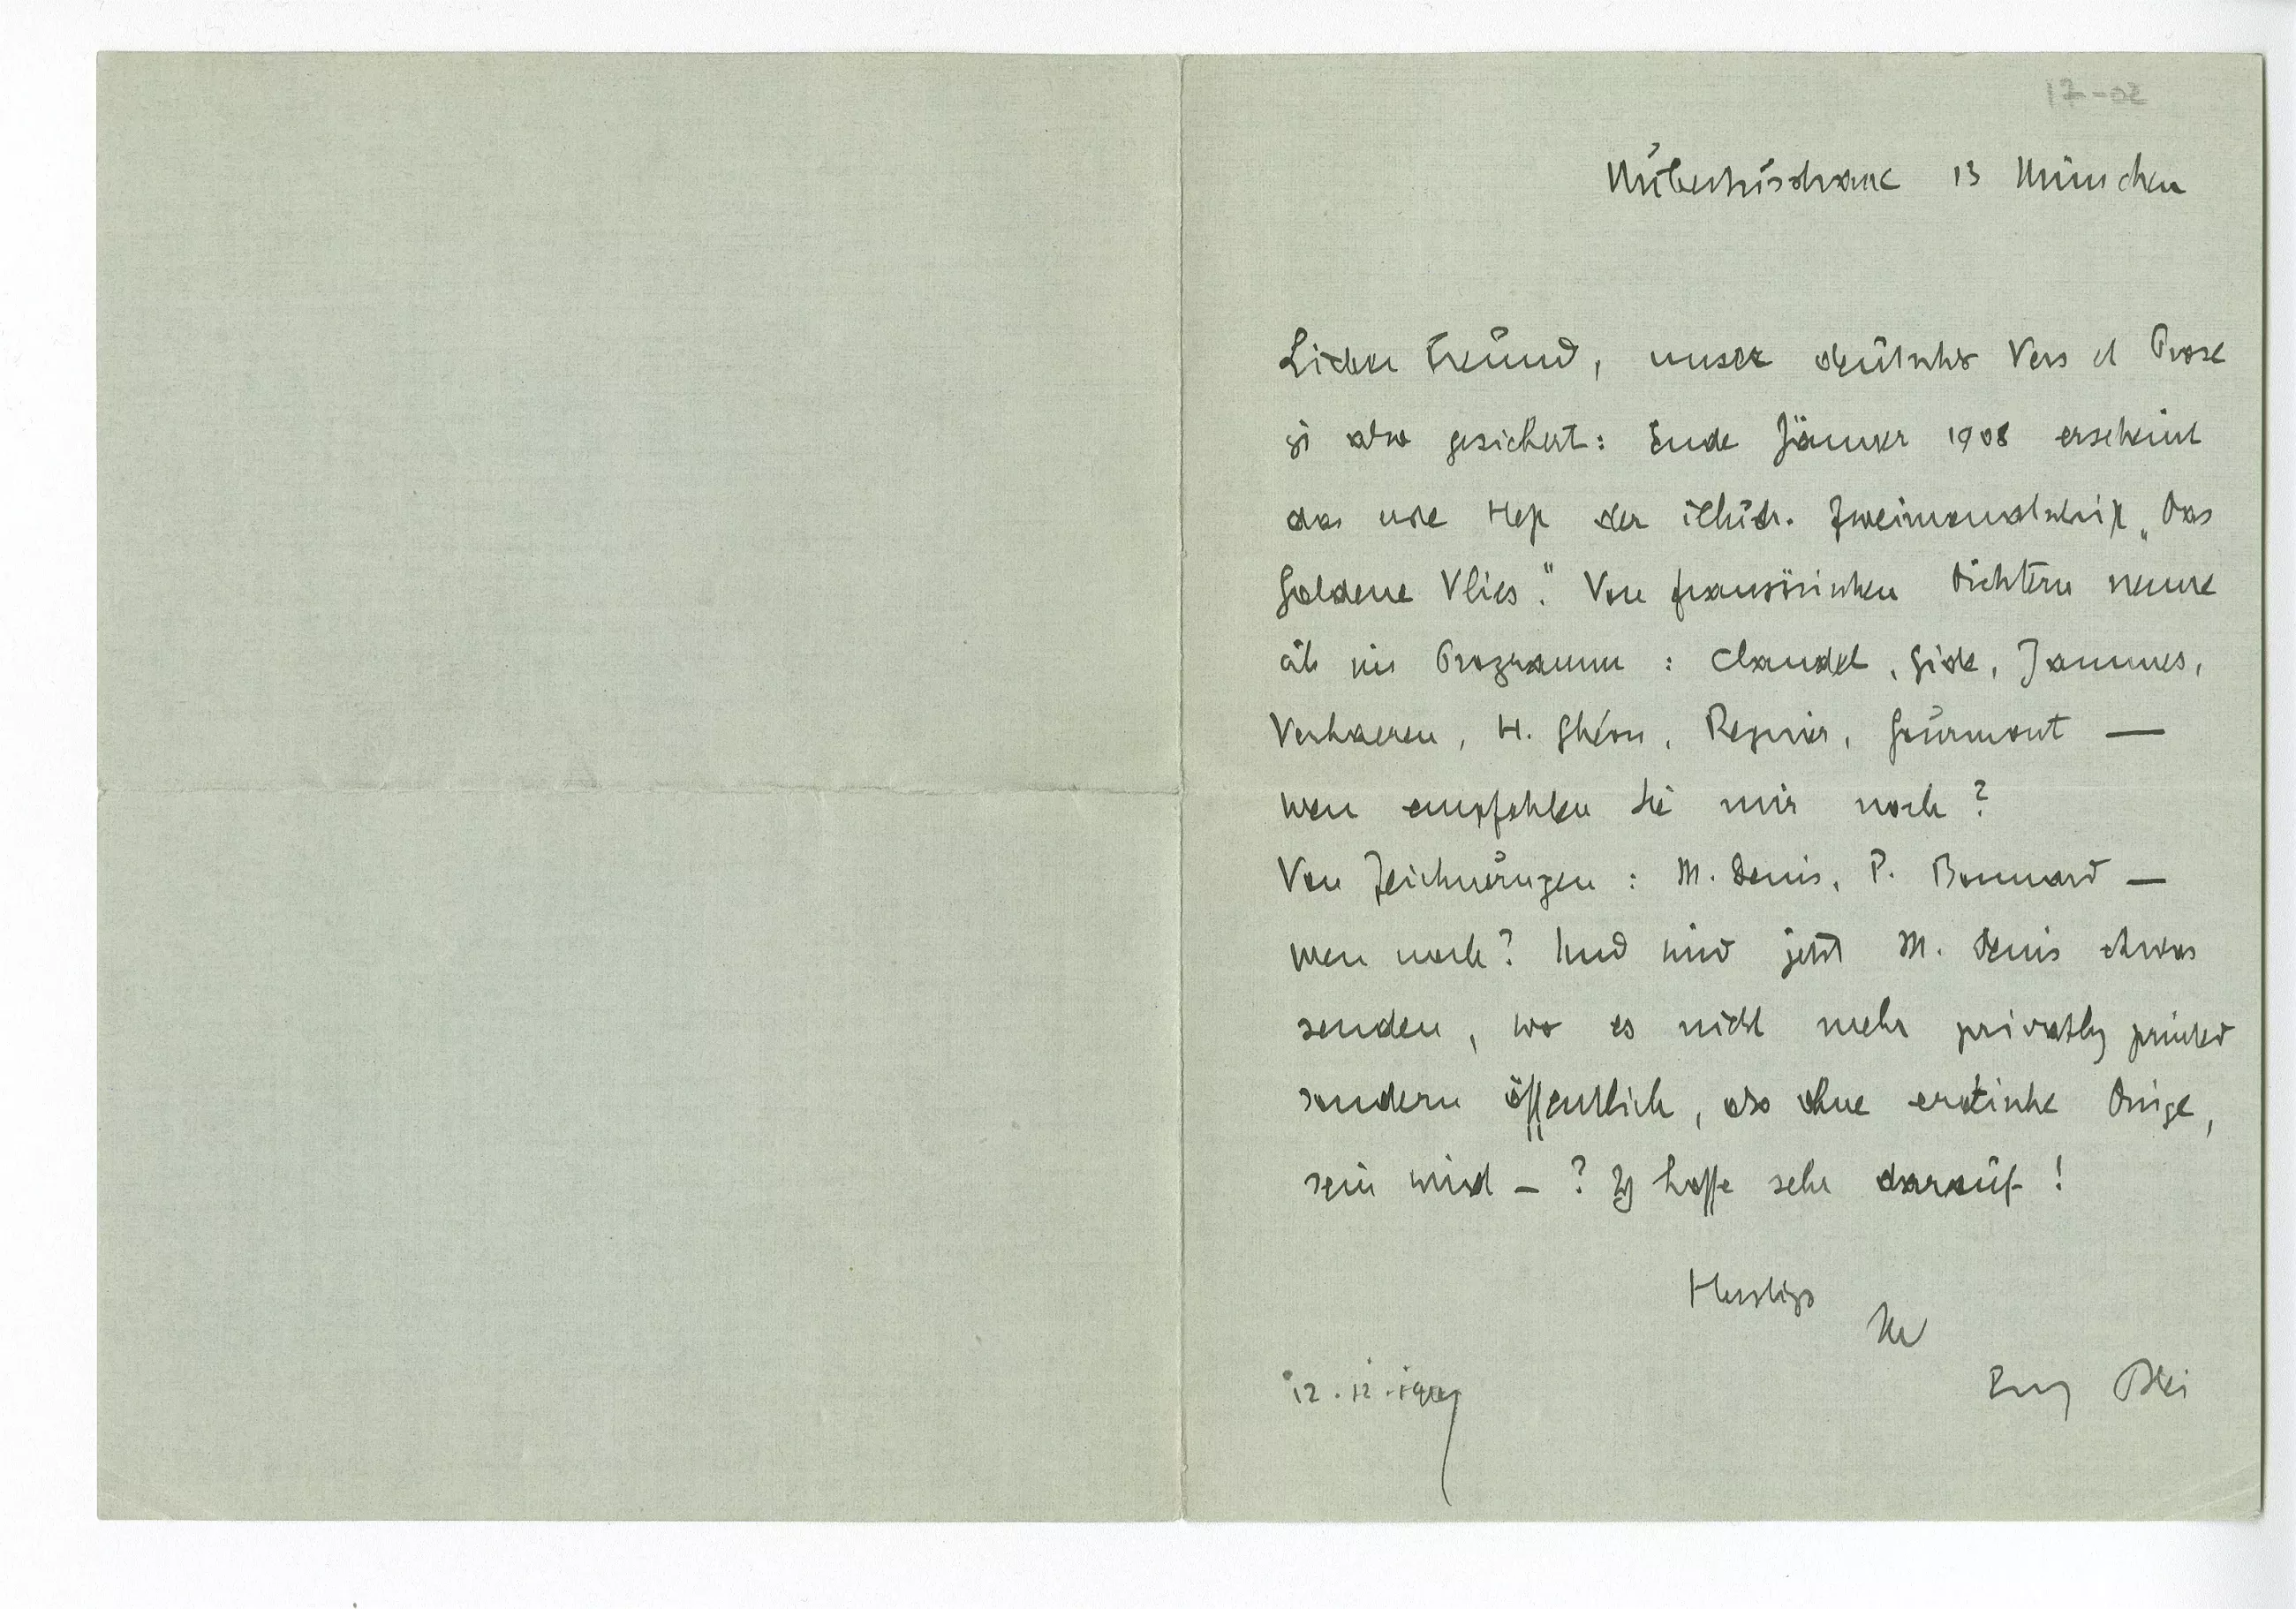 17-02
Hubertusstrasse 13 München
Lieber Freund, unser deutsches Vers et Prose
ist also gesichert: Ende Jänner 1908 erscheint
das erste Heft der illustr. Zweimonatschrift „Das
Goldene Vlies". Von französischen Dichtern nenne
ich im Programm: Claudel, Gide, Jammes,
Verhaeren, H. Ghéon, Regnier, Gourmont —
wen empfehlen Sie mir noch?
Von Zeichnungen: M. Denis, P. Bonnard —
wen noch? Und wird jetzt M. Denis etwas
senden, wo es nicht mehr privatly printed
sondern öffentlich, also ohne erotische Dinge,
sein wird — ? Ich hoffe sehr darauf!
Herzligst
Ihr
12.12.1907
Franz Blei